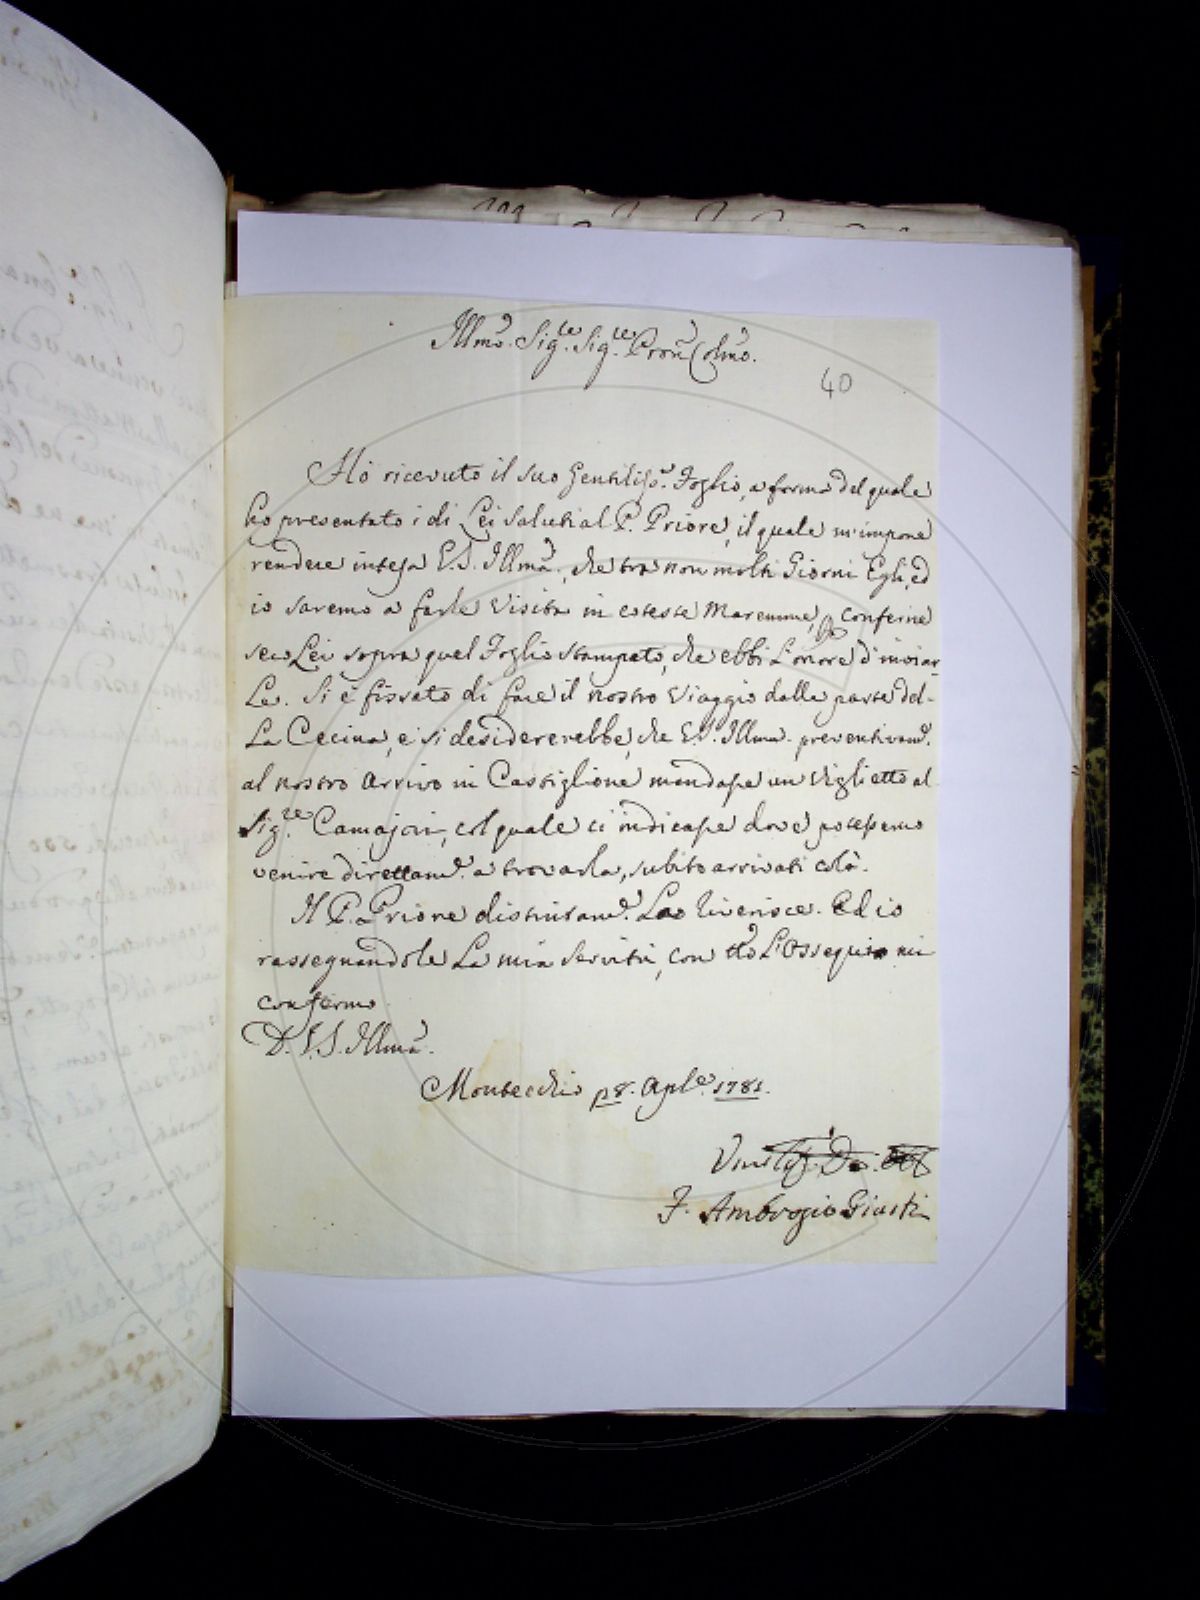 Illmo. Sig.re Sig.re Pron Colmo.
40
Hò ricevuto il suo Gentiliss.o Foglio, a forma del quale
ho presentato i di Lei saluti al P. Priore, il quale m'impone
rendere intesa V.S. Illma., che tra non molti Giorni Egli, ed
io saremo a farle visita in coteste Maremme, p conferire
seco Lei sopra quel Foglio stampato, che ebbi L'onore d'inviar-
Le. Si è fissato di fare il nostro viaggio dalla parte del-
La Cecina, e si desidererebbe, che V.S. Illma. preventivam.e
al nostro arrivo in Castiglione mandasse un viglietto al
Sig.re Camajori, col quale ci indicasse dove potessemo
venire direttam.e a trovarla, subito arrivati colà.
Il P. Priore distintam.e La riverisce. Ed io
rassegnandole La mia servitù, con tto L'Ossequio mi
confermo
D. V.S. Illma.
Montecchio p.8. Aple. 1781.
F. Ambrogio Giusti